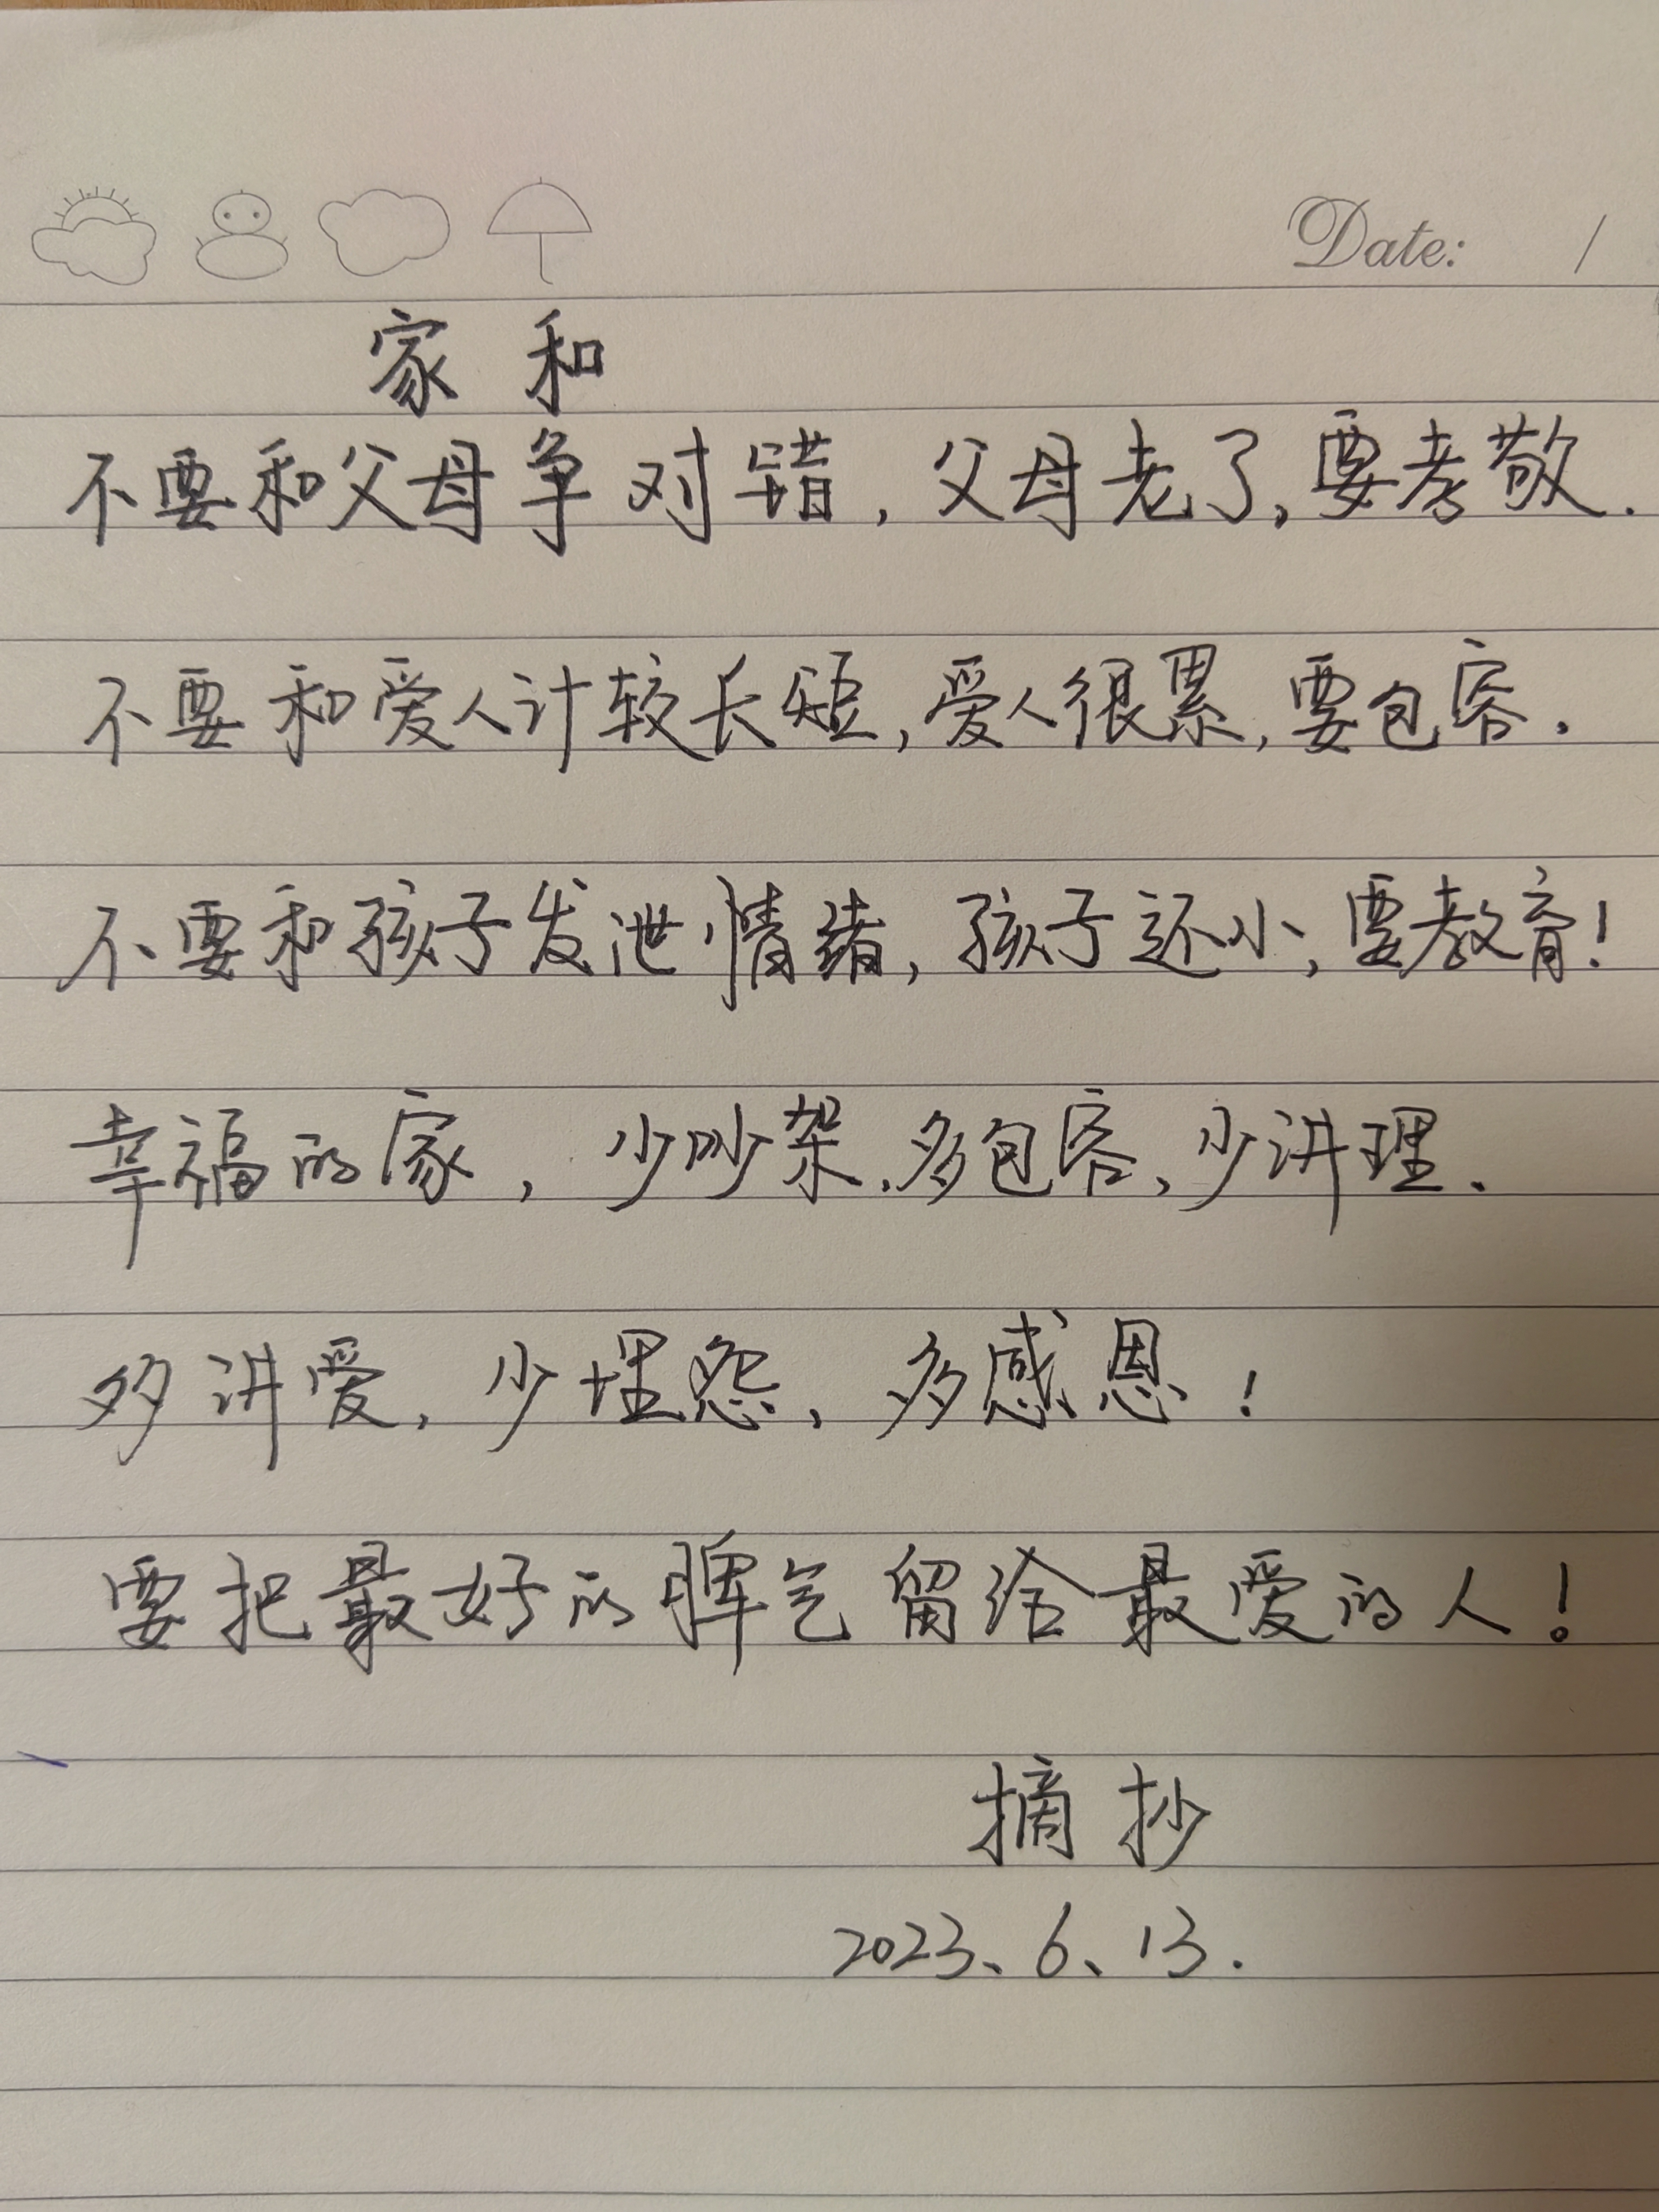 Date: /
家和
不要和父母争对错,父母老了,要孝敬.
不要和爱人计较长短,爱人很累,要包容.
不要和孩子发泄情绪,孩子还小,要教育!
幸福的家,少吵架.多包容,少讲理.
多讲爱,少埋怨,多感恩!
要把最好的脾气留给最爱的人!
摘抄
2023、6、13.